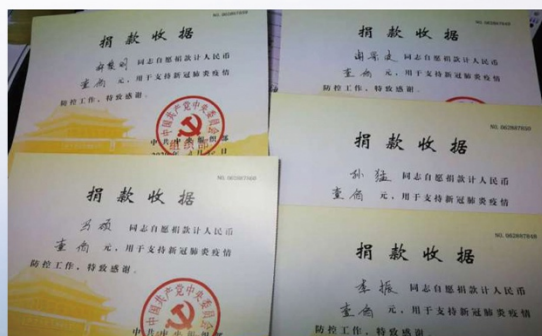 捐款收据
同志自愿捐款计人民币
壹佰 元，用于支持新冠肺炎疫情
防控工作，特致感谢。
中国共产党中央委员会
组织部
中共中央组织部
捐款收据
同志自愿捐款计人民币
壹佰 元，用于支持新冠肺炎疫情
防控工作，特致感谢。
捐款收据
孙猛 同志自愿捐款计人民币
壹佰 元，用于支持新冠肺炎疫情
防控工作，特致感谢。
捐款收据
同志自愿捐款计人民币
壹佰 元，用于支持新冠肺炎疫情
防控工作，特致感谢。
中国共产党中央委员会
捐款收据
李振 同志自愿捐款计人民币
壹佰 元，用于支持新冠肺炎疫情
防控工作，特致感谢。